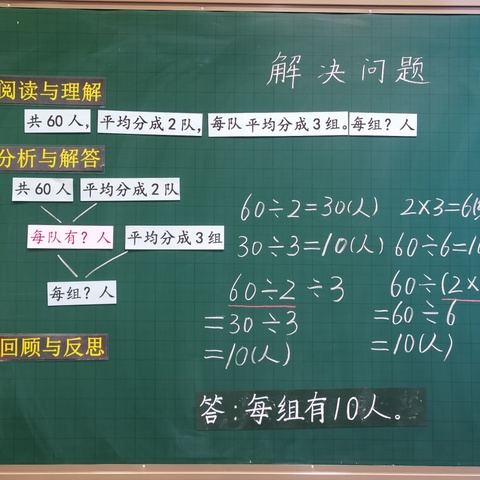 解决问题
阅读与理解
共60人, 平均分成2队, 每队平均分成3组。每组? 人
分析与解答
共60人 平均分成2队
每队有? 人 平均分成3组
每组? 人
60÷2=30(人) 2×3=6(
30÷3=10(人) 60÷6=10
60÷2÷3 60÷(2×
=30÷3 =60÷6
=10(人) =10(人)
回顾与反思
答:每组有10人。